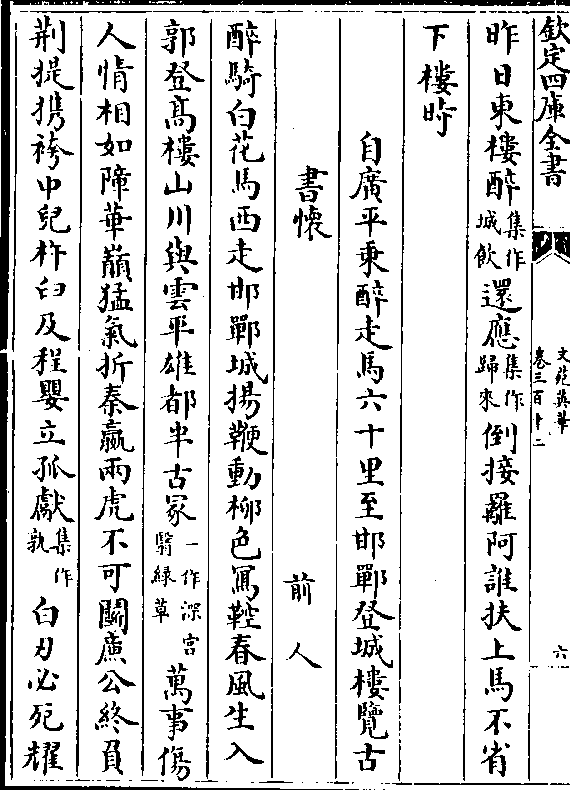 欽定四庫全書
文苑英華
卷三百十二
六
昨日東樓醉集作城飲還應集作歸來倒接䍦阿誰扶上馬不省
下樓時
自廣平乗醉走馬六十里至邯鄲登城樓覽古
書懷
前人
醉騎白花馬西走邯鄲城揚鞭動柳色寫鞚春風生入
郭登髙樓山川與雲平雄都半古冢一作深宫翳緑草萬事傷
人情相如障華巔猛氣折秦嬴兩虎不可鬭廉公終負
荆提携袴中兒杵臼及程嬰立孤獻集作孰白刃必死耀